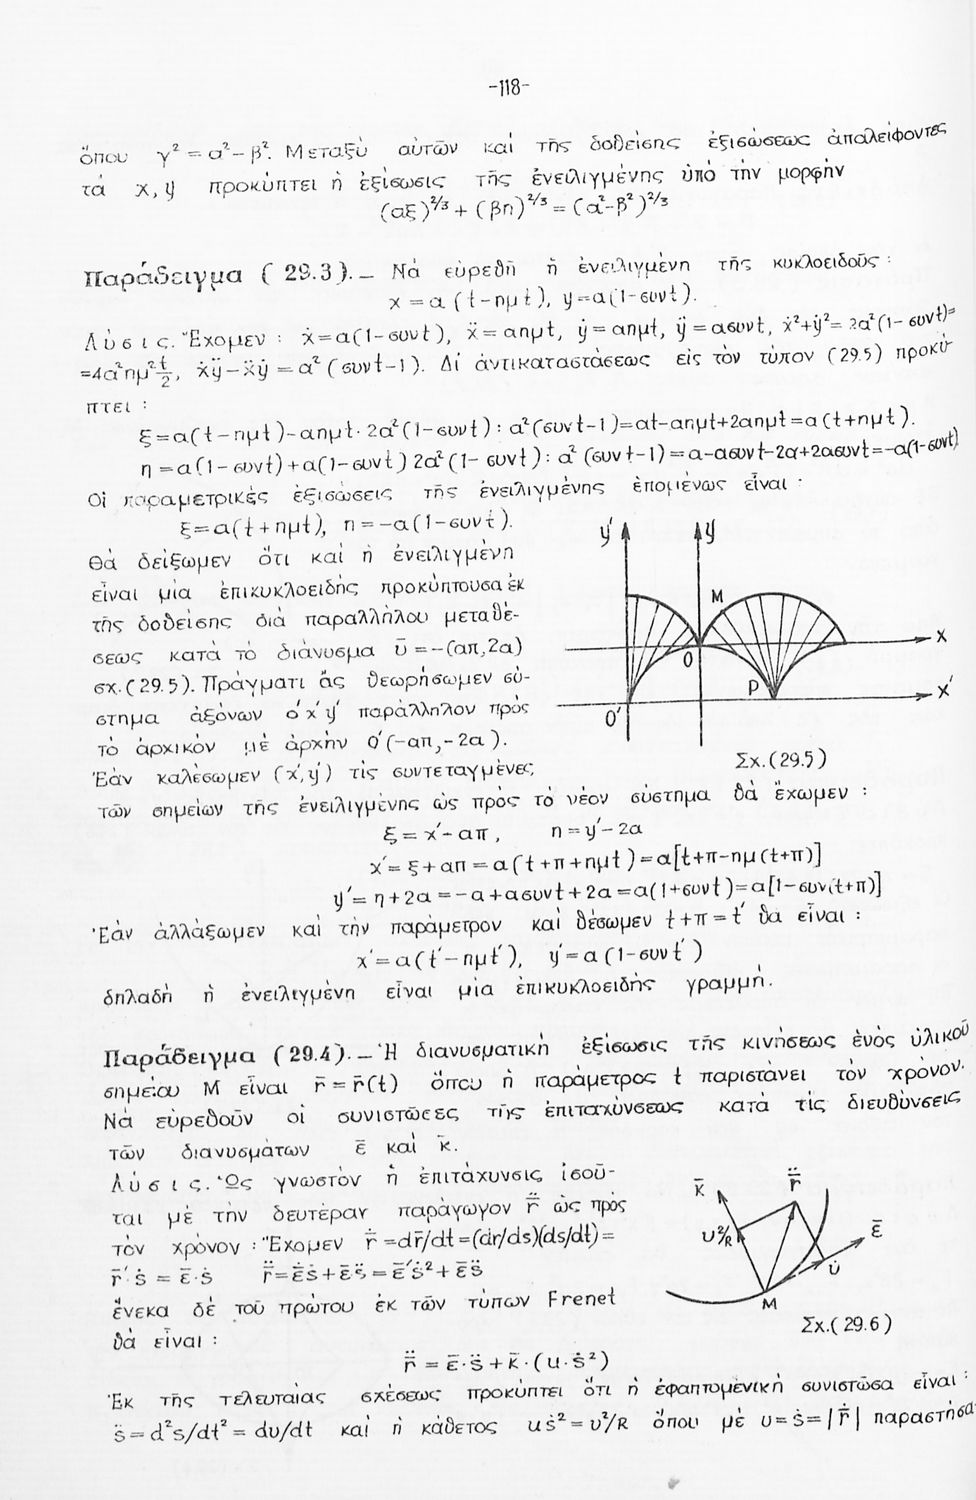 -118-
ὅπου γ² = α²-β². Μεταξὺ αὐτῶν καὶ τῆς δοθείσης ἐξισώσεως ἀπαλείφοντες
τά x, y προκύπτει ἡ ἐξίσωσις τῆς ἐνειλιγμένης ὑπό τὴν μορφὴν
(αξ)^2/3 + (βη)^2/3 = (α²-β²)^2/3
Παράδειγμα (29.3).- Νὰ εὑρεθῆ ἡ ἐνειλιγμένη τῆς κυκλοειδοῦς :
x = α(t-ημt), y=α(1-συνt).
Λύσις. Ἔχομεν : ẋ=α(1-συνt), ẍ=αημt, ẏ=αημt, ÿ=ασυνt, ẋ²+ẏ²= 2α²(1-συνt)=
=4α²ημ²t/2, ẋÿ-ẍẏ = α²(συνt-1). Δι' ἀντικαταστάσεως εἰς τὸν τύπον (29.5) προκύ-
πτει :
ξ=α(t-ημt)-αημt·2α²(1-συνt) : α²(συνt-1)=αt-αημt+2αημt=α(t+ημt).
η=α(1-συνt)+α(1-συνt)2α²(1-συνt) : α²(συνt-1)=α-ασυνt-2α+2ασυνt=-α(1-συνt)
Οἱ παραμετρικές ἐξισώσεις τῆς ἐνειλιγμένης ἐπομένως εἶναι :
ξ=α(t+ημt), η=-α(1-συνt).
Θὰ δείξωμεν ὅτι καὶ ἡ ἐνειλιγμένη
εἶναι μία ἐπικυκλοειδής προκύπτουσα ἐκ
τῆς δοθείσης διὰ παραλλήλου μεταθέ-
σεως κατὰ τὸ διάνυσμα ῡ=-(απ,2α)
σχ.(29.5). Πράγματι ἄς θεωρήσωμεν σύ-
στημα ἀξόνων o'x'y' παράλληλον πρὸς
τὸ ἀρχικόν μὲ ἀρχὴν O'(-απ,-2α).
Ἐὰν καλέσωμεν (x',y') τὶς συντεταγμένες
y' y M x O P x' O'
Σχ.(29.5)
τῶν σημείων τῆς ἐνειλιγμένης ὡς πρὸς τὸ νέον σύστημα θὰ ἔχωμεν :
ξ = x'-απ, η=y'-2α
x'= ξ+απ = α(t+π+ημt)=α[t+π-ημ(t+π)]
y'= η+2α = -α+ασυνt+2α=α(1+συνt)=α[1-συν(t+π)]
Ἐὰν ἀλλάξωμεν καὶ τὴν παράμετρον καὶ θέσωμεν t+π=t' θὰ εἶναι :
x'=α(t'-ημt'), y'=α(1-συνt')
δηλαδὴ ἡ ἐνειλιγμένη εἶναι μία ἐπικυκλοειδής γραμμή.
Παράδειγμα (29.4).- Ἡ διανυσματικὴ ἐξίσωσις τῆς κινήσεως ἑνὸς ὑλικοῦ
σημείου M εἶναι r̄=r̄(t) ὅπου ἡ παράμετρος t παριστάνει τὸν χρόνον.
Νὰ εὑρεθοῦν οἱ συνιστῶσες τῆς ἐπιταχύνσεως κατὰ τὶς διευθύνσεις
τῶν διανυσμάτων ε̄ καὶ κ̄.
Λύσις. Ὡς γνωστὸν ἡ ἐπιτάχυνσις ἰσοῦ-
ται μὲ τὴν δευτέραν παράγωγον r̄̈ ὡς πρὸς
τὸν χρόνον : Ἔχομεν r̄̇=dr̄/dt=(dr̄/ds)(ds/dt)=
r̄'·ṡ = ε̄·ṡ r̄̈=ε̄̇ṡ+ε̄s̈=ε̄'ṡ²+ε̄s̈
ἕνεκα δὲ τοῦ πρώτου ἐκ τῶν τύπων Frenet
θὰ εἶναι :
κ̄ r̄̈ υ²/R ε̄ υ̇ M
Σχ.(29.6)
r̄̈ = ε̄·s̈+κ̄·(u·ṡ²)
Ἐκ τῆς τελευταίας σχέσεως προκύπτει ὅτι ἡ ἐφαπτομένική συνιστῶσα εἶναι :
s̈=d²s/dt²=dυ/dt καὶ ἡ κάθετος uṡ²=υ²/R ὅπου μὲ υ=ṡ=|r̄̇| παραστήσα-